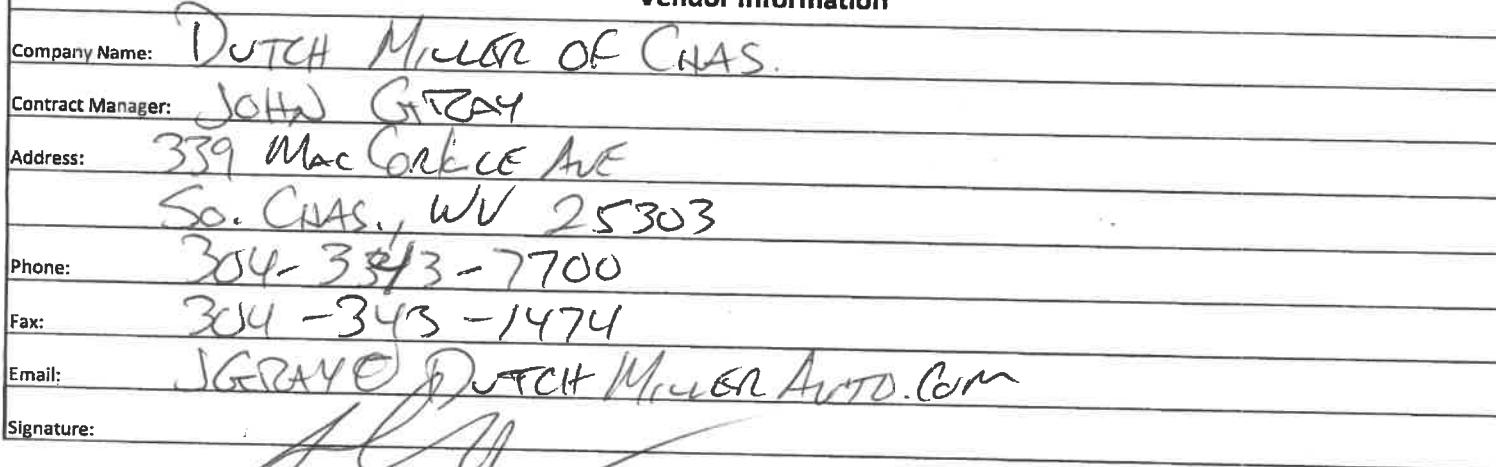 Vendor Information
Company Name: DUTCH MILLER OF CHAS.
Contract Manager: JOHN GRAY
Address: 339 MAC CORKLE AVE
SO. CHAS., WV 25303
Phone: 304-343-7700
Fax: 304-343-1474
Email: JGRAY@DUTCHMILLERAUTO.COM
Signature: